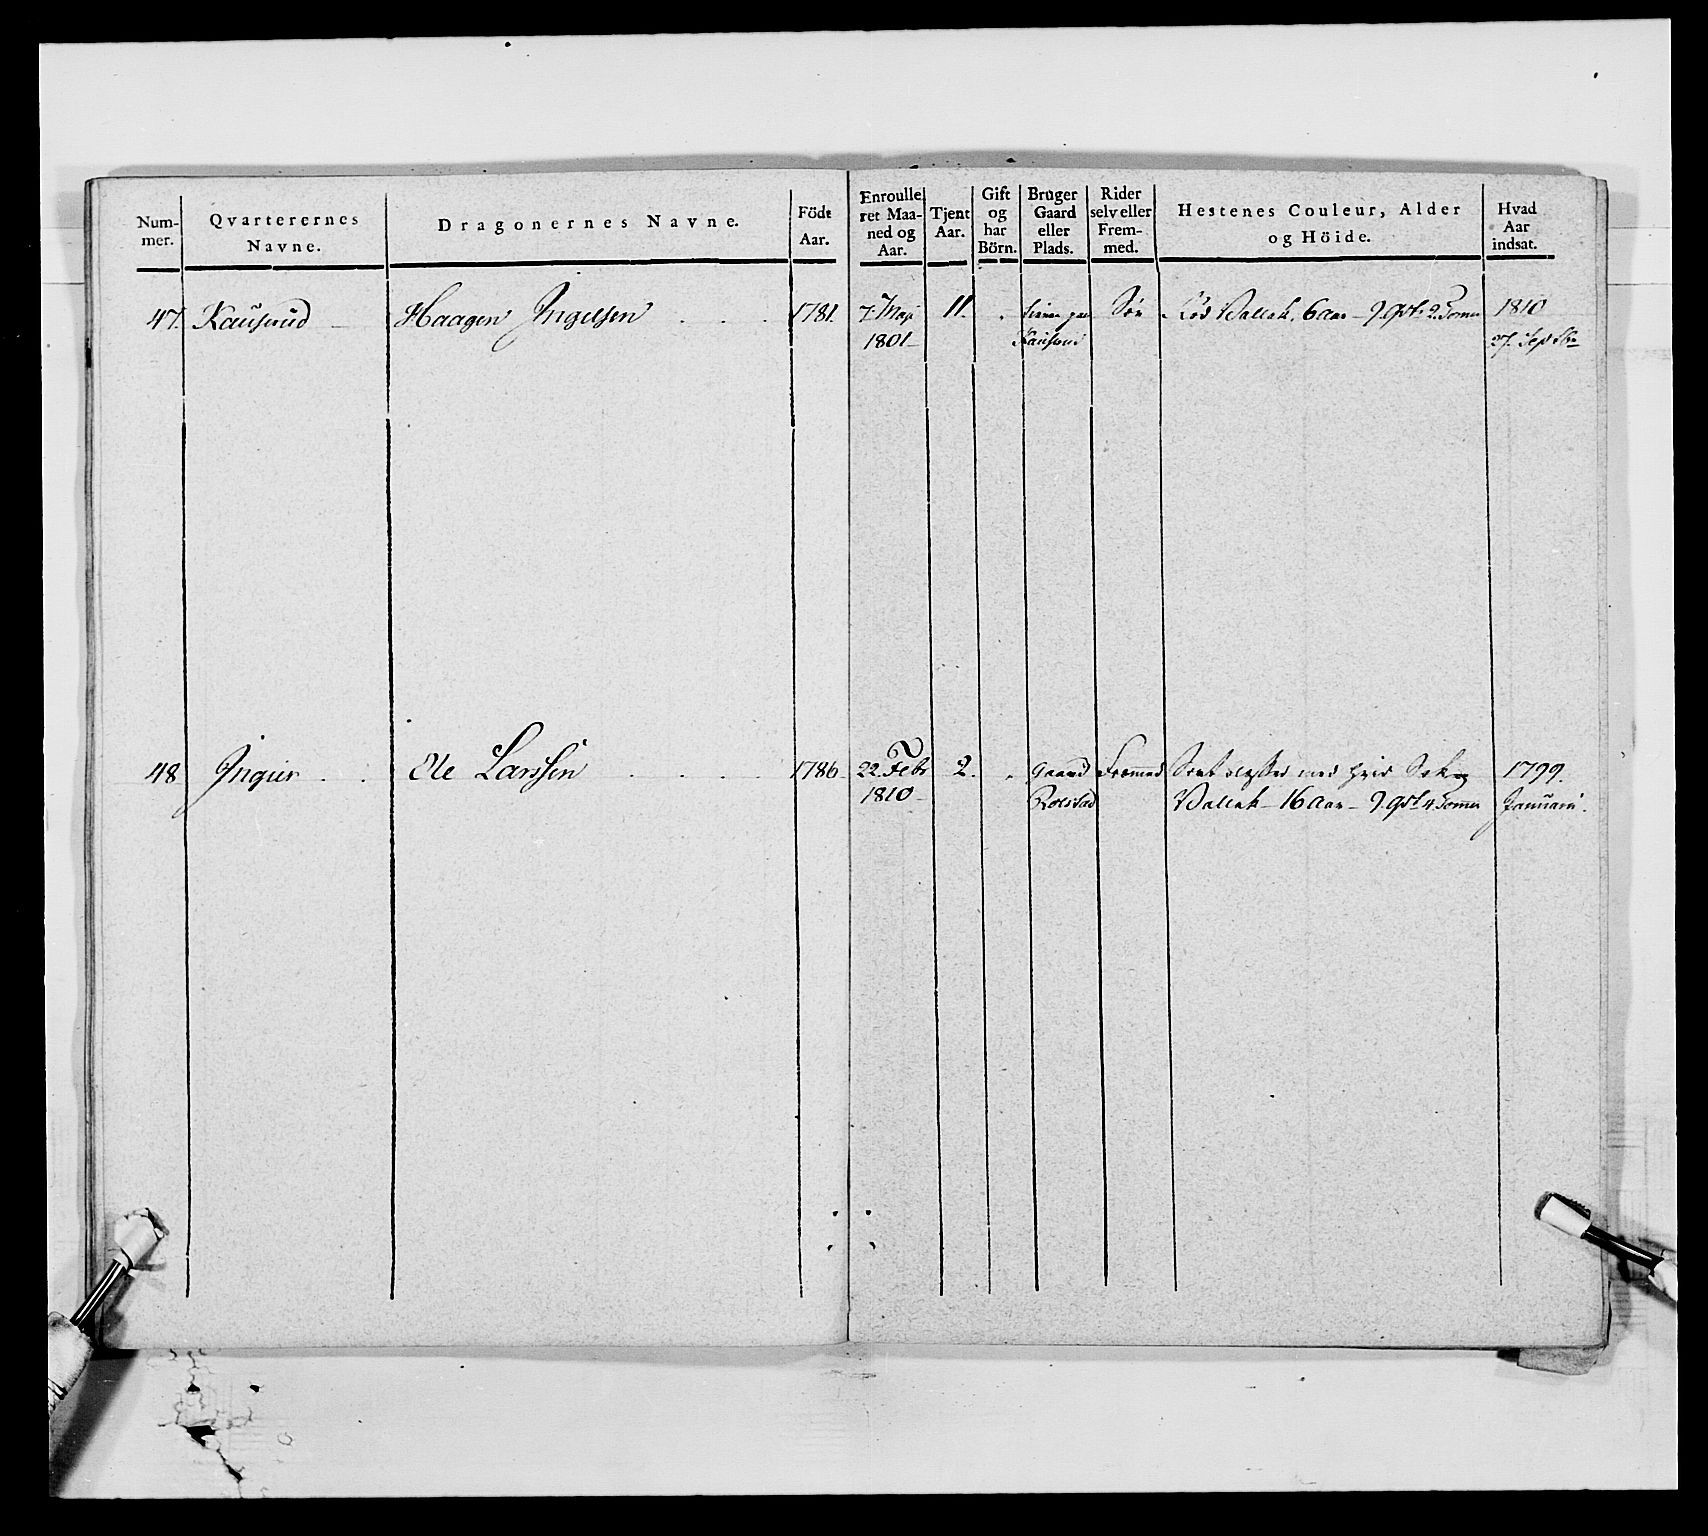 Num-
mer.
Qvarterernes
Navne.
Dragonernes Navne.
Födt
Aar.
Enroulle
ret Maa-
ned og
Aar.
Tjent
Aar.
Gift
og
har
Börn.
Bruger
Gaard
eller
Plads.
Rider
selv eller
Frem-
med.
Hestenes Couleur, Alder
og Höide.
Hvad
Aar
indsat.
47. Kauserud Haagen Ingelsen 1781. 7. Maji 11. Röd Vallak, 6 Aar - 9. qvt. 2. Tomer 1810
1801 27. Septbr
48 Ingier Ole Larssen 1786 22. Febr 2. Gaard Fremmed med hvid 1799.
1810 Rolstad Vallak - 16 Aar - 9. qvt 4. Tomer Januarii.